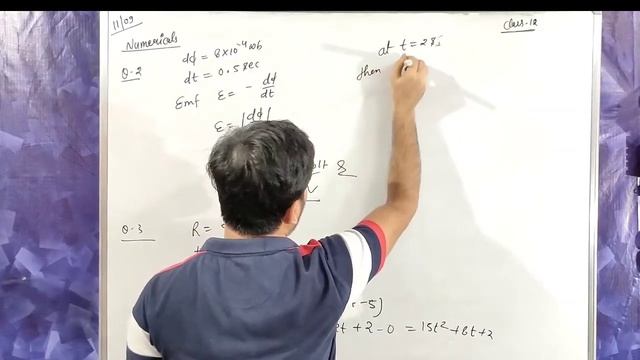 11/09
Class-12
Numericals
Q-2
dϕ = 8×10⁻⁴ wb
dt = 0.5 sec
Emf ε = - dϕ/dt
ε = |dϕ
at t = 2
then
Q-3
R =
-5)
t + 2 - 0 = 15t² + 8t + 2